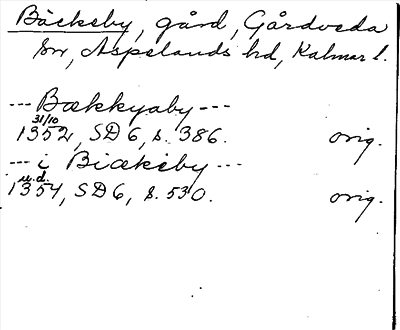 Bäckeby, gård, Gårdveda
sn, Aspelands hd, Kalmar l.
--- Bækkyaby ---
31/10
1352, SD 6, s. 386. orig.
--- i Biækeby ---
u.d.
1354, SD 6, s. 530. orig.